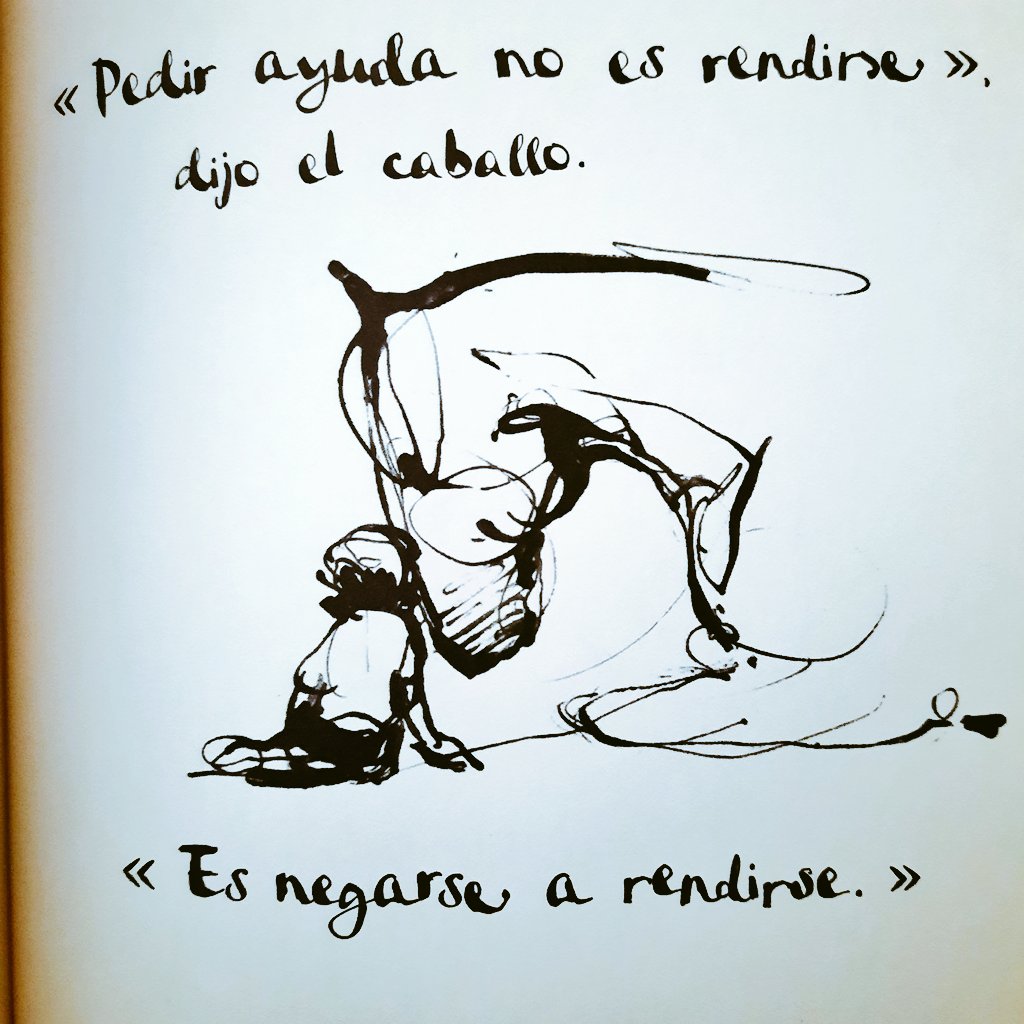 «Pedir ayuda no es rendirse»,
dijo el caballo.
«Es negarse a rendirse.»